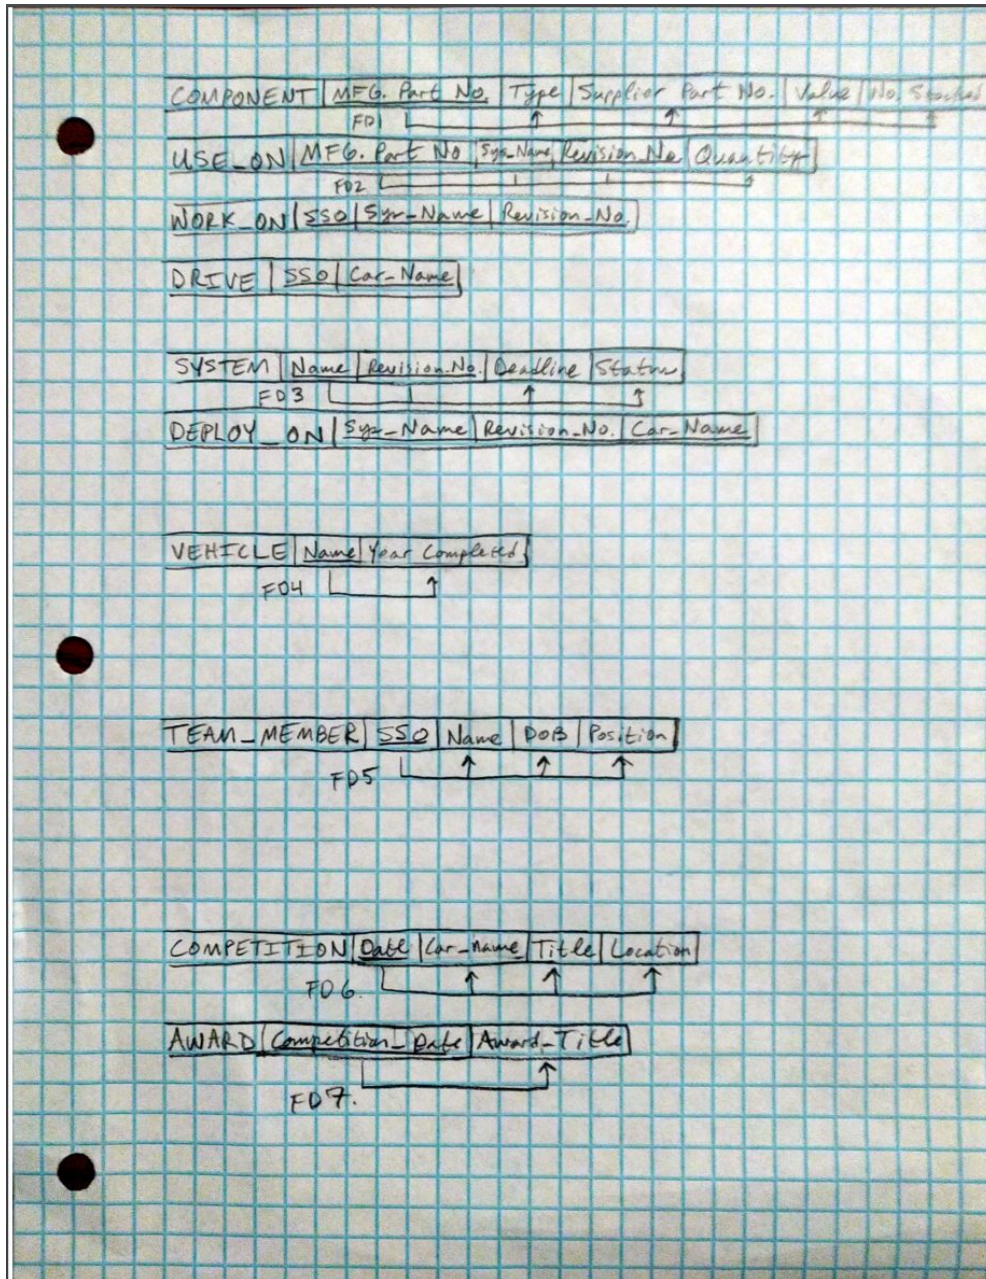 COMPONENT MFG. Part No. Type Supplier Part No. Value No. Stocked
FD1
USE_ON MFG. Part No Sys_Name Revision_No Quantity
FD2
WORK_ON SSO Sys_Name Revision_No.
DRIVE SSO Car_Name
SYSTEM Name Revision_No. Deadline Status
FD3
DEPLOY_ON Sys_Name Revision_No. Car_Name
VEHICLE Name Year Completed
FD4
TEAM_MEMBER SSO Name DOB Position
FD5
COMPETITION Date Car_name Title Location
FD6.
AWARD Competition_Date Award_Title
FD7.